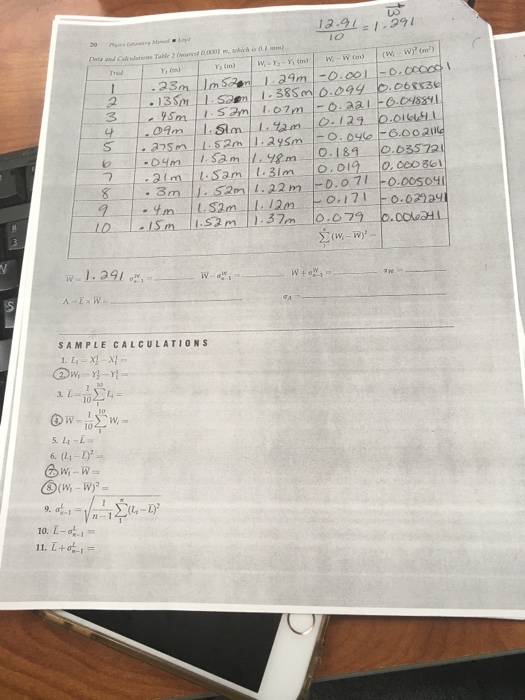 W
12.91 / 10 = 1.291
20 Physics Laboratory Manual ■ Loyd
Data and Calculations Table 2 (nearest 0.0001 m, which is 0.1 mm)
Trial Y₁ (m) Y₂ (m) Wᵢ = Y₂ − Y₁ (m) Wᵢ − W̄ (m) (Wᵢ − W̄)² (m²)
1 .23m 1m52cm 1.29m -0.001 -0.000001
2 .135m 1.52m 1.385m 0.094 0.008836
3 .45m 1.52m 1.07m -0.221 -0.048841
4 .09m 1.51m 1.42m 0.129 0.016641
5 .275m 1.52m 1.245m -0.046 -0.002116
6 .04m 1.52m 1.48m 0.189 0.035721
7 .21m 1.52m 1.31m 0.019 0.000361
8 .3m 1.52m 1.22m -0.071 -0.005041
9 .4m 1.52m 1.12m -0.171 -0.029241
10 .15m 1.52m 1.37m 0.079 0.006241
Σ(Wᵢ − W̄)² =
W̄ = 1.291 σᵂₙ₋₁ = W̄ − σᵂₙ₋₁ = W̄ + σᵂₙ₋₁ = αW =
A = L̄ × W̄ = σA =
SAMPLE CALCULATIONS
1. L₁ = X¹₂ − X¹₁ =
2. W₁ = Y¹₂ − Y¹₁ =
3. L̄ = 1/10 Σ Lᵢ =
4. W̄ = 1/10 Σ Wᵢ =
5. L₁ − L̄ =
6. (L₁ − L̄)² =
7. W₁ − W̄ =
8. (W₁ − W̄)² =
9. σᴸₙ₋₁ = √(1/(n−1) Σ(Lᵢ − L̄)²)
10. L̄ − σᴸₙ₋₁ =
11. L̄ + σᴸₙ₋₁ =